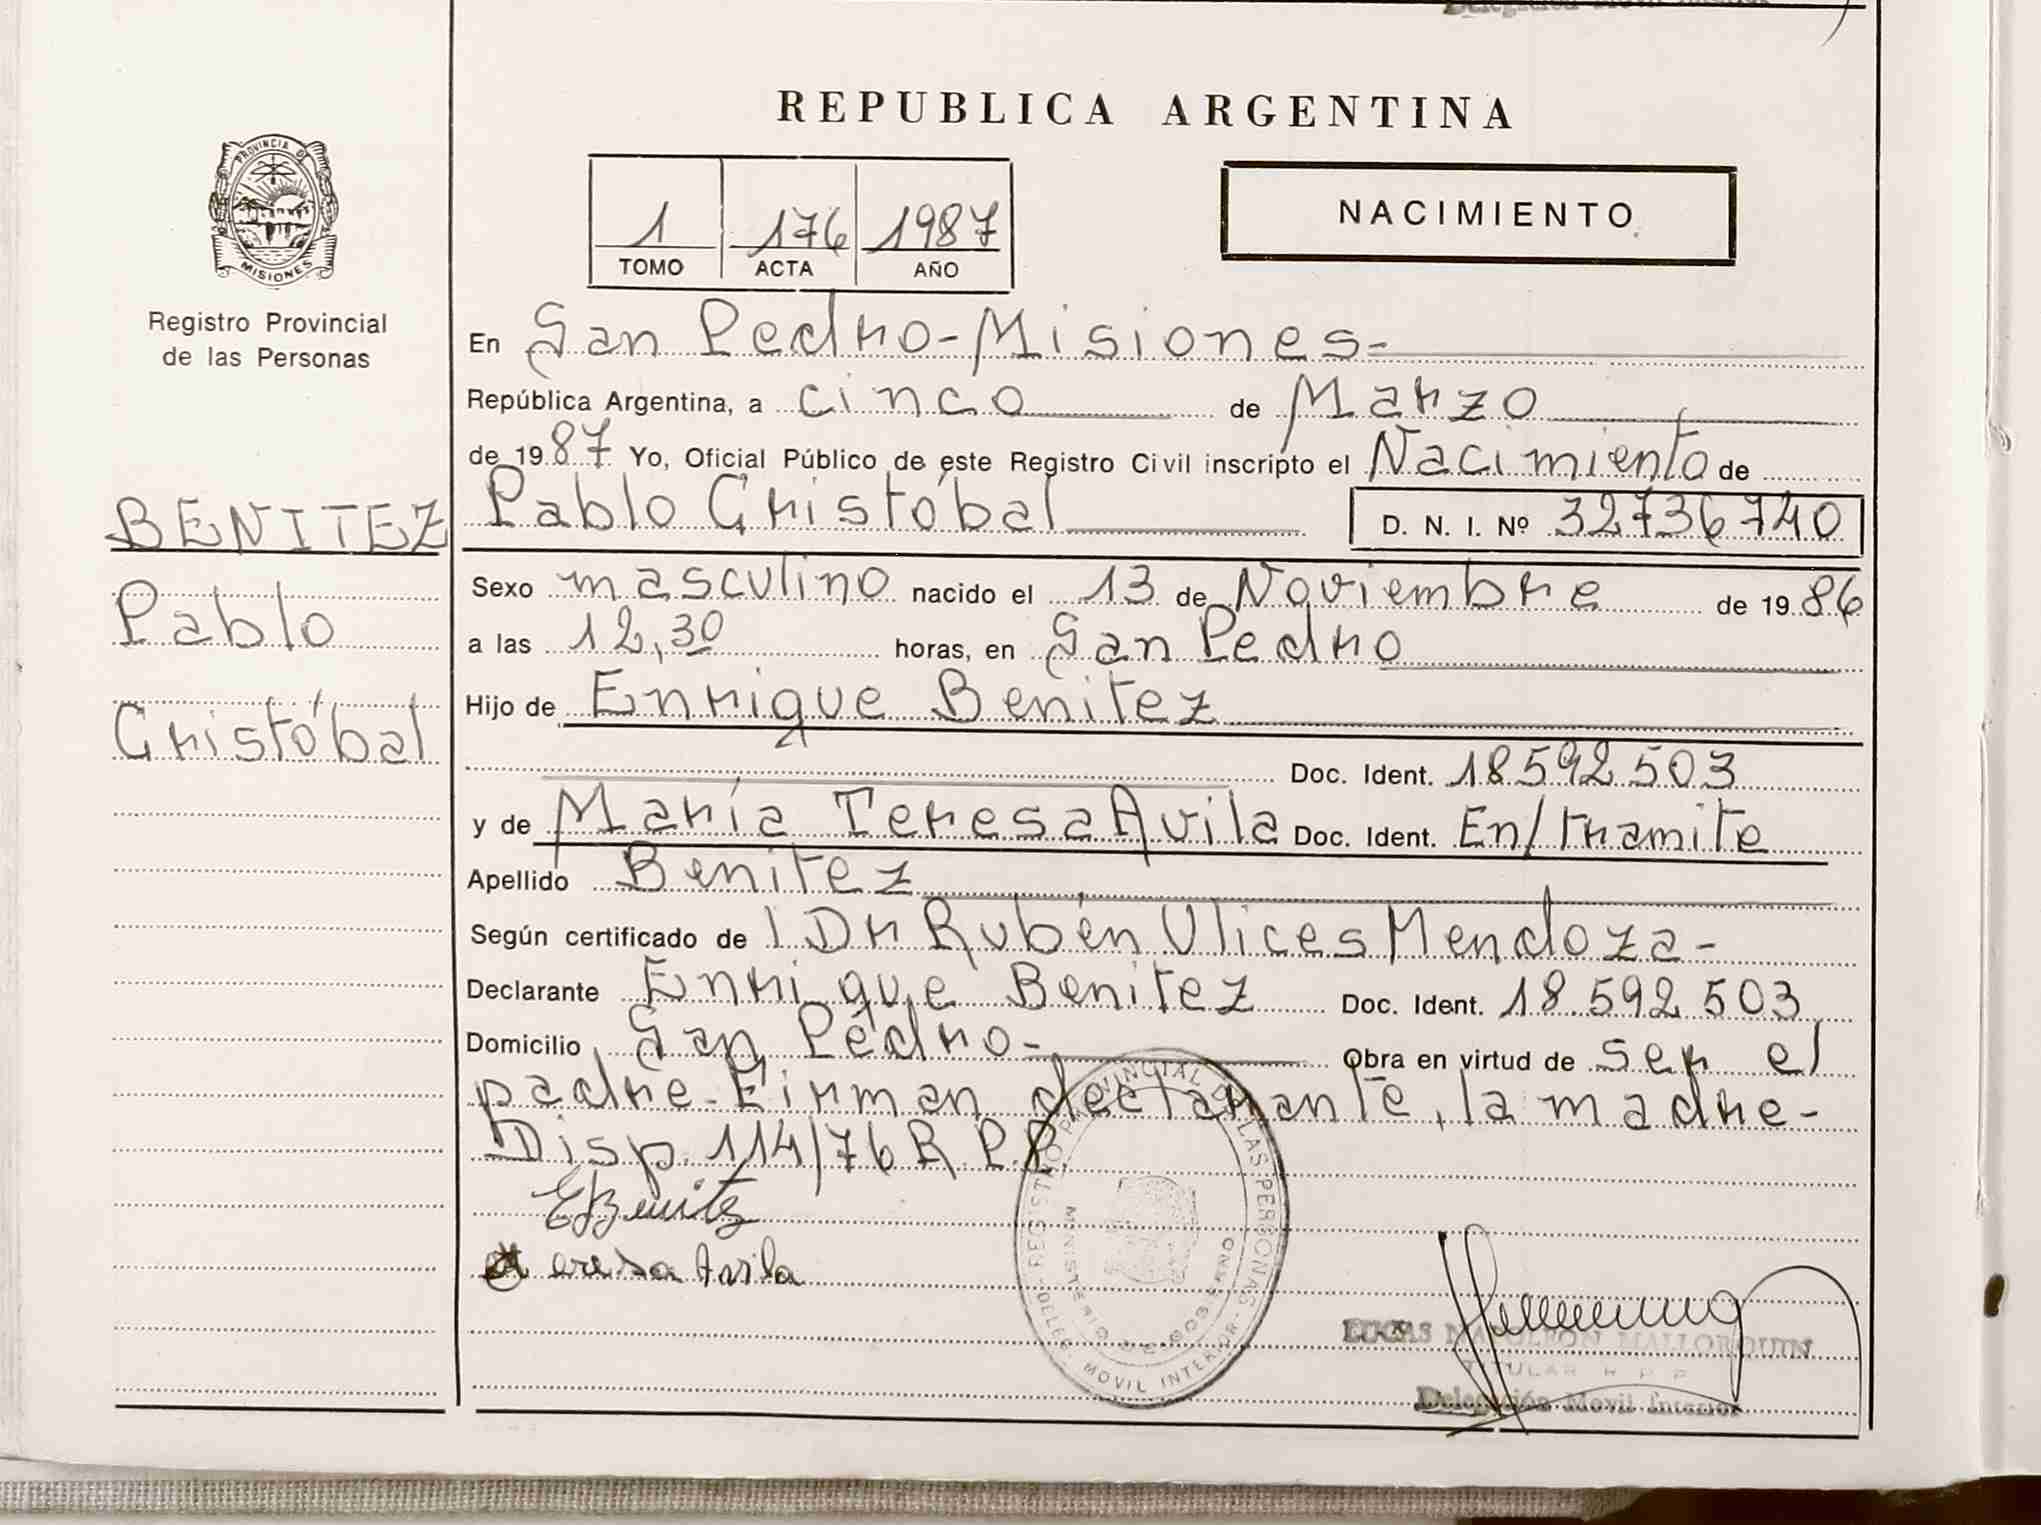 REPUBLICA ARGENTINA
PROVINCIA DE
MISIONES
Registro Provincial
de las Personas
1 176 1987
TOMO ACTA AÑO
NACIMIENTO
En San Pedro-Misiones-
República Argentina, a cinco de Marzo
de 1987 Yo, Oficial Público de este Registro Civil inscripto el Nacimiento de
BENITEZ
Pablo
Cristóbal
Pablo Cristóbal D. N. I. Nº 32736740
Sexo masculino nacido el 13 de Noviembre de 1986
a las 12,30 horas, en San Pedro
Hijo de Enrique Benitez
Doc. Ident. 18.592.503
y de María Teresa Avila Doc. Ident. En/tramite
Apellido Benitez
Según certificado de l Dr Rubén Ulices Mendoza-
Declarante Enrique Benitez Doc. Ident. 18.592.503
Domicilio San Pedro- Obra en virtud de ser el
padre-Firman declarante, la madre-
Disp. 114/76 R.P.P.
EBenitez
Teresa Avila
REGISTRO PROVINCIAL DE LAS PERSONAS
MINISTERIO DE GOBIERNO
DELEG. MOVIL INTERIOR
LUCAS NAPOLEON MALLORQUIN
TITULAR R P P
Delegación Movil Interior